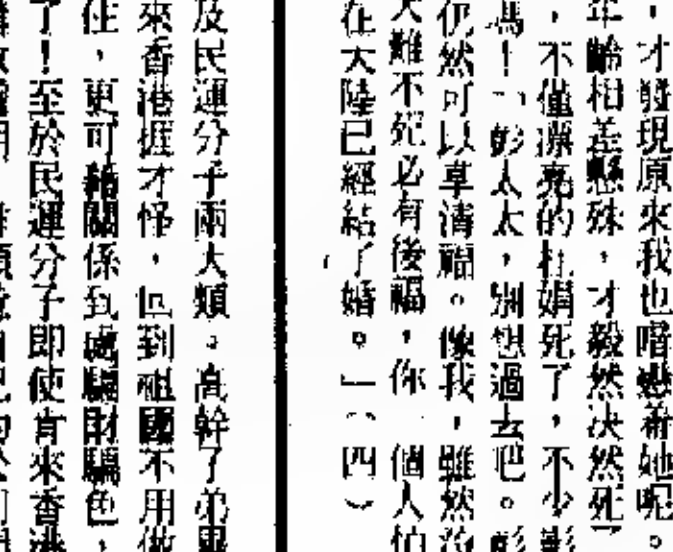 ，才發現原來我也暗戀着她呢。
年齡相差懸殊，才毅然決然死
，不僅漂亮的杜娟死了，不少影
嗎！「彭太太，別想過去吧。彭
仍然可以享清福。像我，雖然沒
大難不死必有後福，你一個人怕
在大陸已經結了婚。」（四）
及民運分子兩大類。高幹子弟
來香港捱才怪，但到祖國不用做
住，更可藉關係到處騙財騙色，
了！至於民運分子即使肯來香港